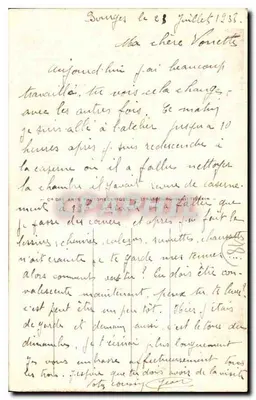 Bourges le 23 Juillet 1938.
Ma chère
Aujourd'hui j'ai beaucoup
travaillé, tu vois cela change
avec les autres fois. Ce matin
je suis allé à l'atelier jusqu'à 10
heures après je suis redescendu à
la caserne on il a fallu nettoyer
la chambre il y avait revue de caserne-
ment
je fasse des et après j'ai fait la
lessive, chemises, caleçon, serviettes, chaussettes
n'ait crainte je te garde
alors comment vas tu? tu dois être con-
valescente maintenant, peux tu te lever?
c'est peut être un peu tôt. Hier j'étais
de garde et demain aussi c'est le tour des
dimanches. Je t'écrirai plus longuement
Je vous embrasse affectueusement tous
les trois. J'espère que tu dois avoir de la visite
Jean